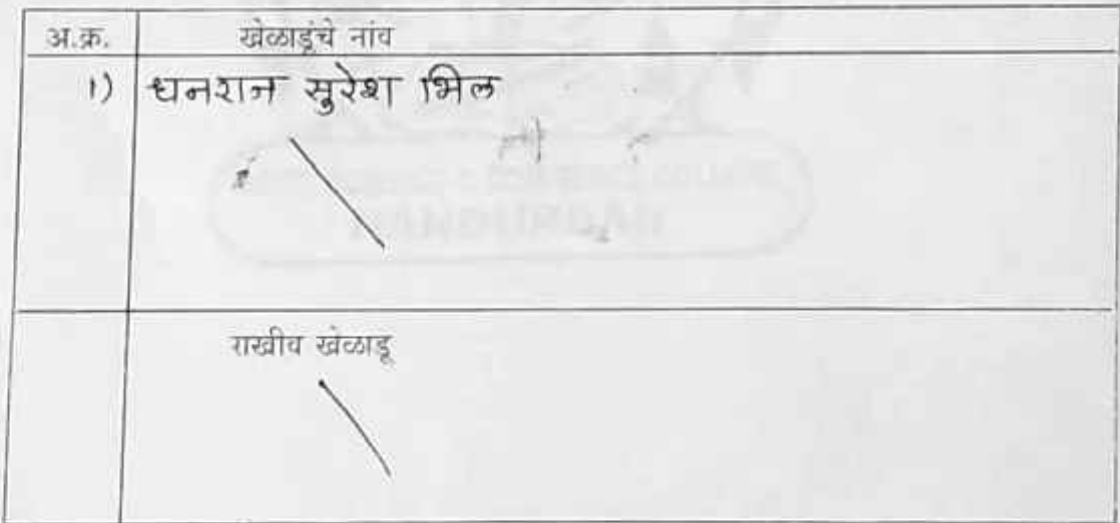 अ.क्र. खेळाडूंचे नांव
१) धनराज सुरेश भिल
राखीव खेळाडू